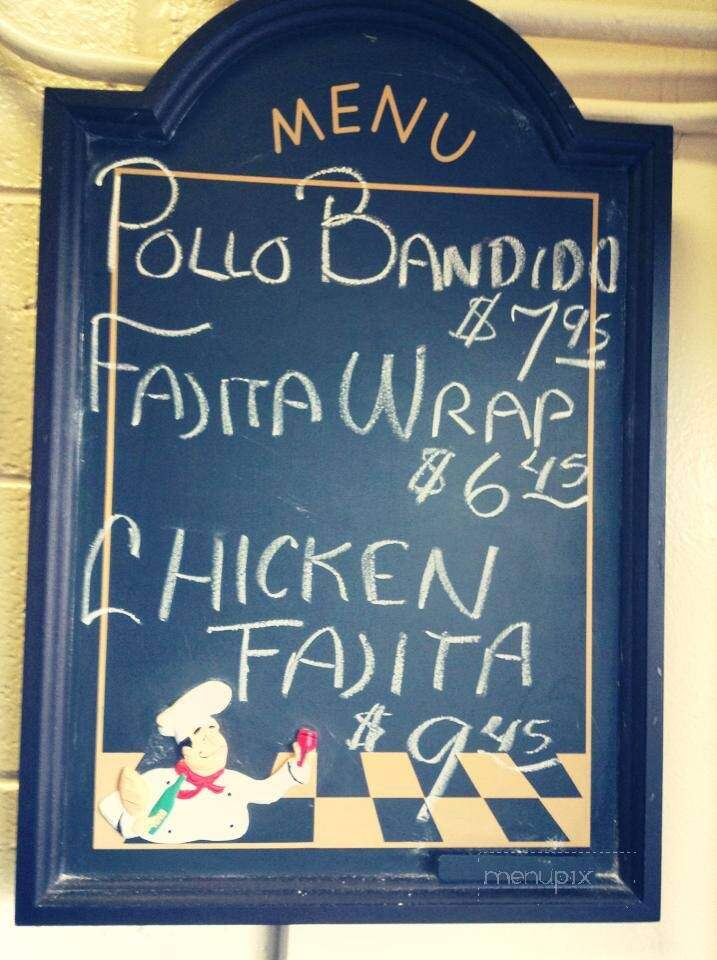 MENU
POLLO BANDIDO
$7.95
FAJITA WRAP
$6.45
CHICKEN
FAJITA
$9.45
menupix